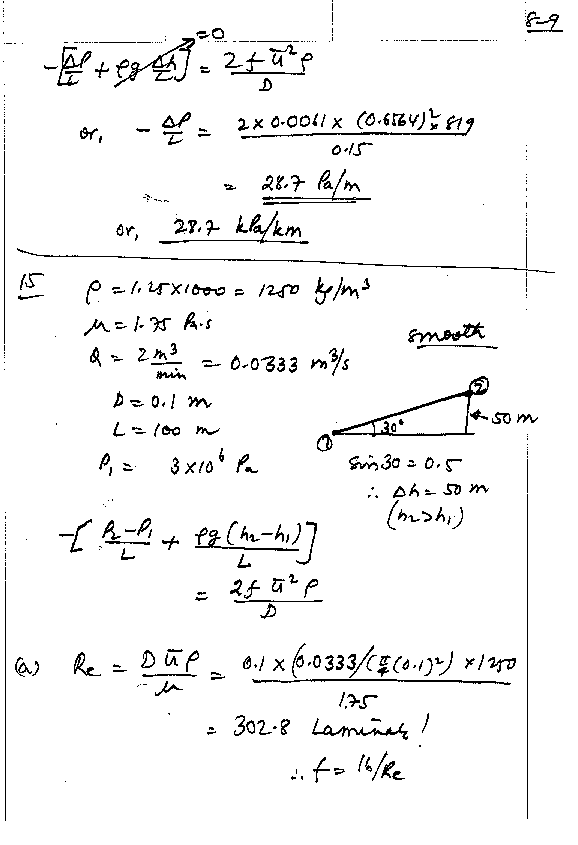 8-9
-[ΔP/L + ρg Δh/L] = 2f ū²ρ/D
=0
or, - ΔP/L = 2×0.0061× (0.6564)²× 819 / 0.15
= 28.7 Pa/m
or, 28.7 kPa/km
15 ρ = 1.25×1000 = 1250 kg/m³
μ = 1.75 Pa.s
smooth
Q = 2 m³/min = 0.0333 m³/s
D = 0.1 m
L = 100 m
P₁ = 3×10⁶ Pa
②
50 m
30°
①
Sin 30 = 0.5
∴ Δh = 50 m
(h₂>h₁)
-[ P₂-P₁/L + ρg(h₂-h₁)/L ]
= 2f ū² ρ/D
(a) Re = D ū ρ/μ = 0.1 × (0.0333/(π/4 (0.1)²) × 1250 / 1.75
= 302.8 Laminar !
∴ f = 16/Re